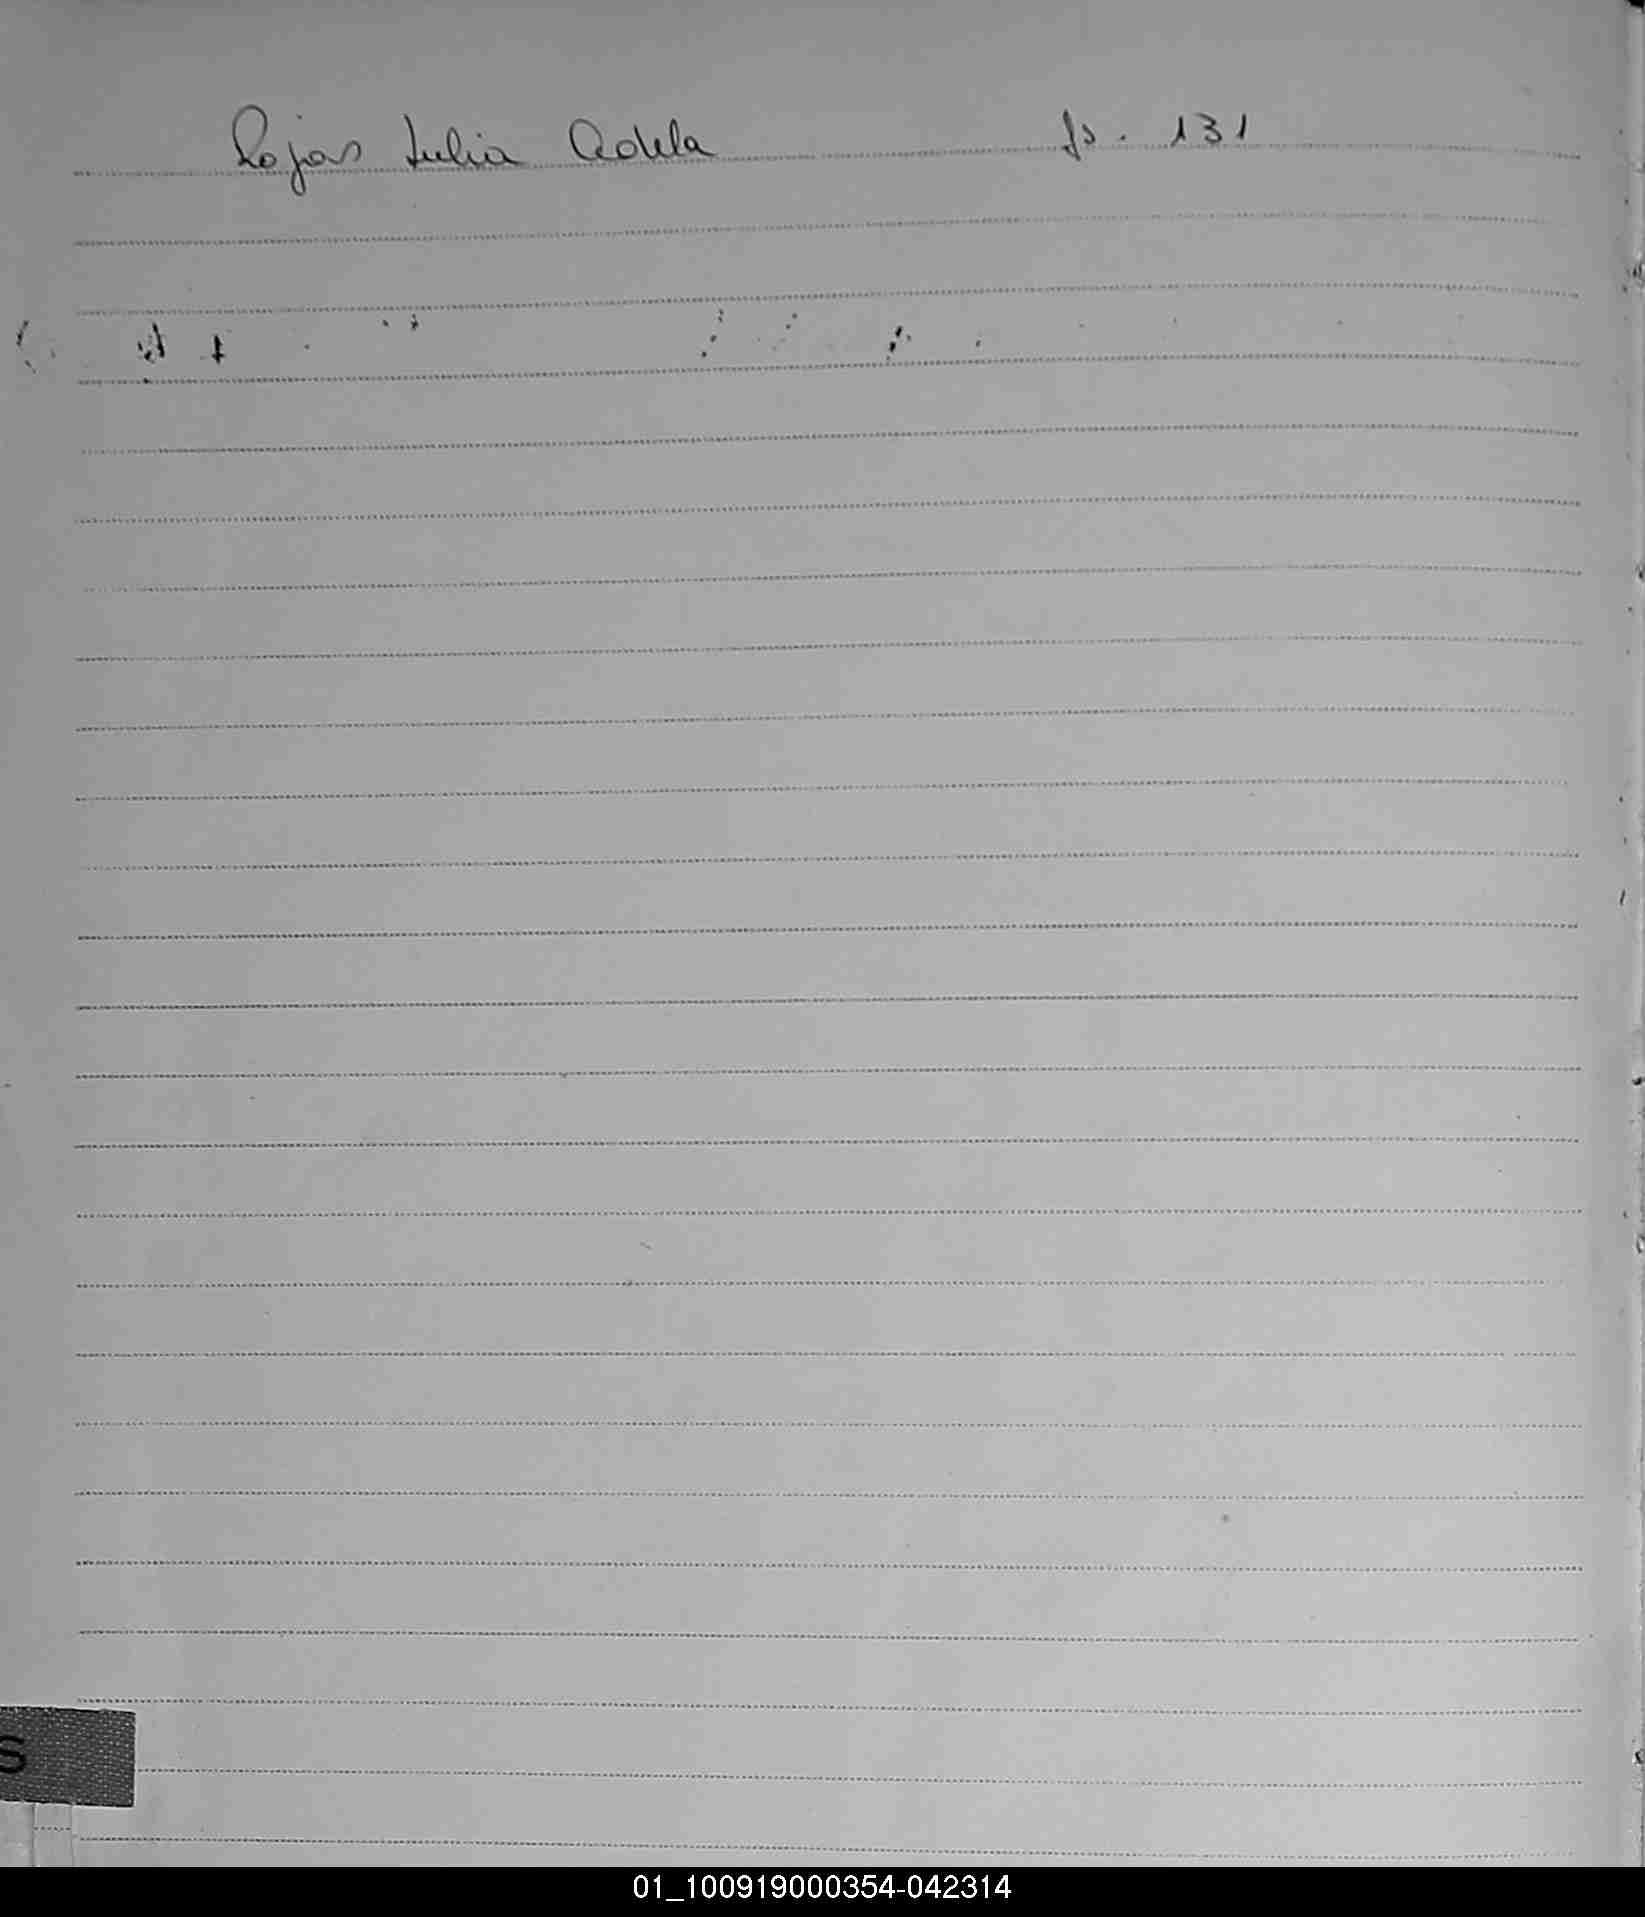 Rojas Julia Adela fs. 131
S
01_100919000354-042314